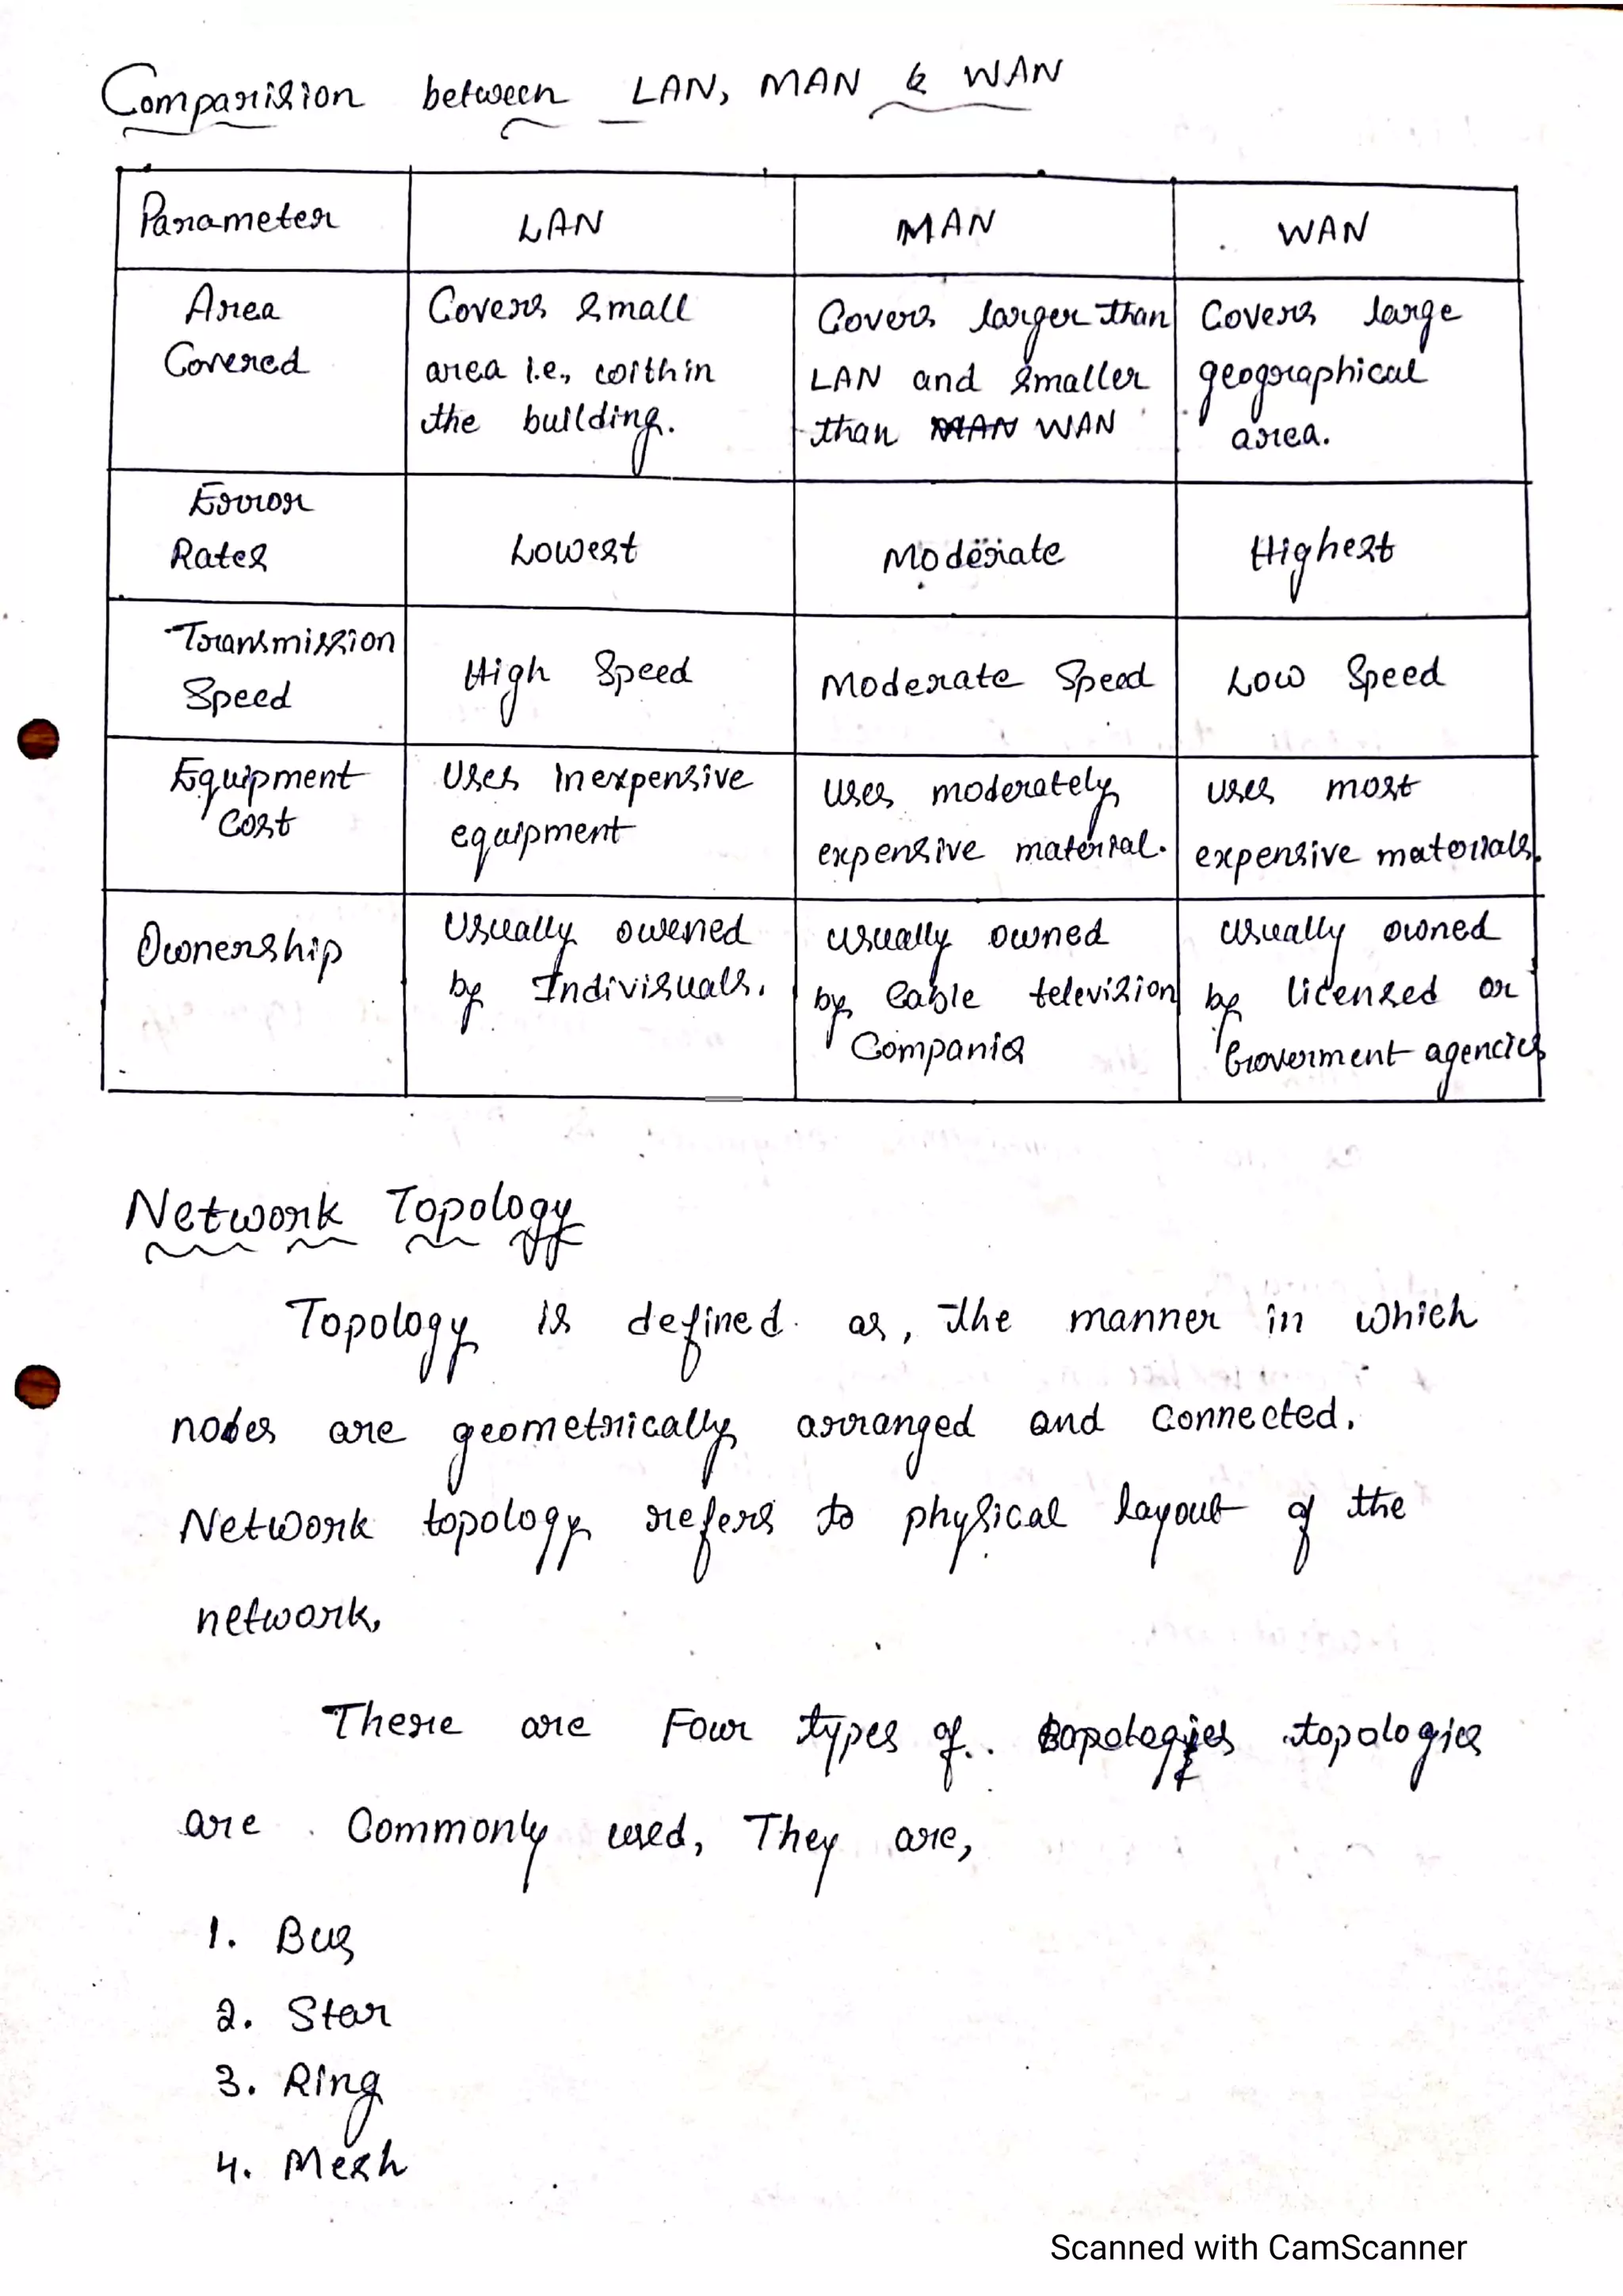 Comparision between LAN, MAN & WAN
Parameter LAN MAN WAN
Area Covered
Covers small area i.e., within the building.
Covers larger than LAN and smaller than MAN WAN
Covers large geographical area.
Error Rates
Lowest
Moderate
Highest
Transmission Speed
High Speed
Moderate Speed
Low Speed
Equipment Cost
Uses Inexpensive equipment
Uses moderately expensive material.
uses most expensive materials.
Ownership
Usually owened by Indivisuals.
usually owned by Cable television Companies
usually owned by licensed or Goverment agencies
Network Topology
Topology is defined as, the manner in which
nodes are geometrically arranged and connected.
Network topology refers to physical layout of the
network.
There are Four types of topologies topologies
are Commonly used, They are,
1. Bus
2. Star
3. Ring
4. Mesh
Scanned with CamScanner